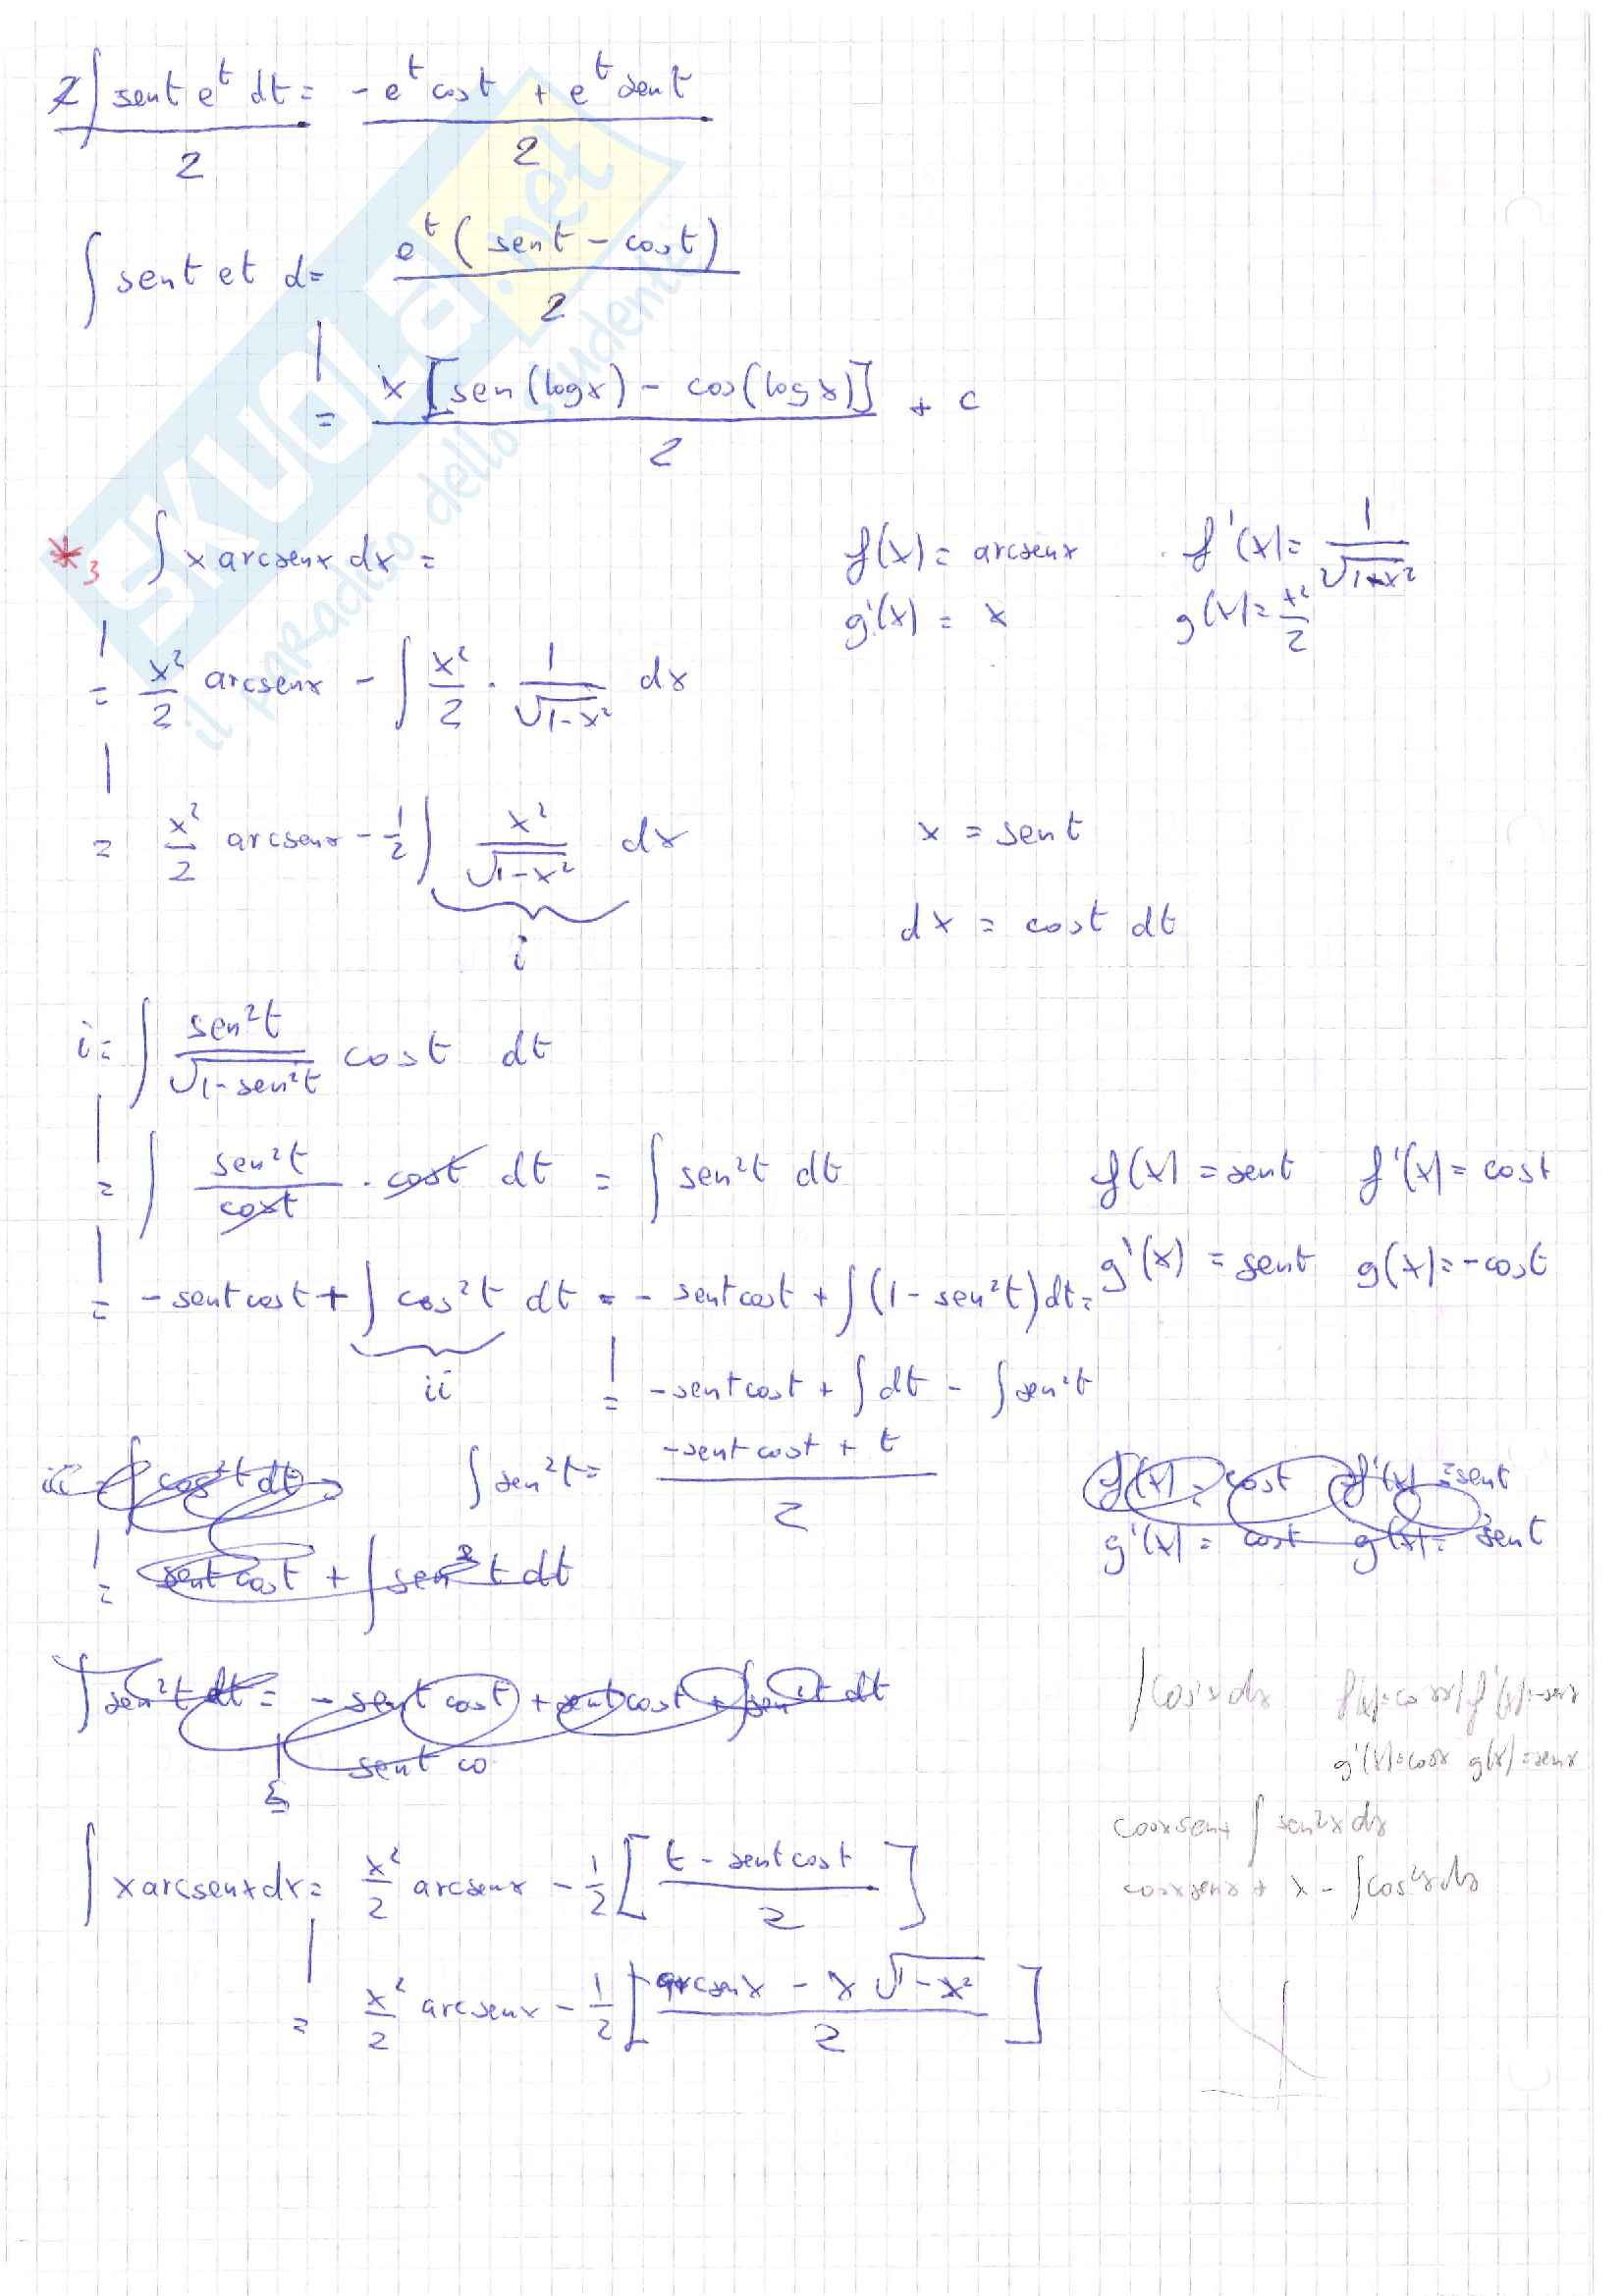 2∫ sent e^t dt / 2 = (-e^t cost + e^t sent) / 2
∫ sent et d= e^t (sent - cost) / 2
= x [sen(logx) - cos(logx)] / 2 + c
*3 ∫ x arcsenx dx = f(x) = arcsenx f'(x)= 1/√1-x²
g'(x) = x g(x)= x²/2
= x²/2 arcsenx - ∫ x²/2 · 1/√1-x² dx
= x²/2 arcsenx - 1/2 ∫ x²/√1-x² dx x = sent
i dx = cost dt
i= ∫ sen²t/√1-sen²t cost dt
= ∫ sen²t/cost · cost dt = ∫ sen²t dt f(x) = sent f'(x)= cost
g'(x) = sent g(x)= -cost
= - sent cost + ∫ cos²t dt = - sent cost + ∫ (1 - sen²t) dt =
ii = -sent cost + ∫ dt - ∫ sen²t
ii = ∫ cos²t dt = ∫ sen²t = (-sent cost + t) / 2 f(x) = cost f'(x) = sent
g'(x) = cost g(x) = sent
= sent cost + ∫ sen²t dt
∫ sen²t dt = - sent cost + sent cost + ∫ sen²t dt
sent co
∫cos²x dx f(x)=cosx f'(x)=-senx
g'(x)=cosx g(x)=senx
cosxsenx+ ∫ sen²x dx
cosxsenx + x - ∫cos²x dx
∫ x arcsenx dx = x²/2 arcsenx - 1/2 [ (t - sent cost) / 2 ]
= x²/2 arcsenx - 1/2 [ (arcsenx - x √1-x²) / 2 ]
SKUOLA.net
il paradiso dello studente